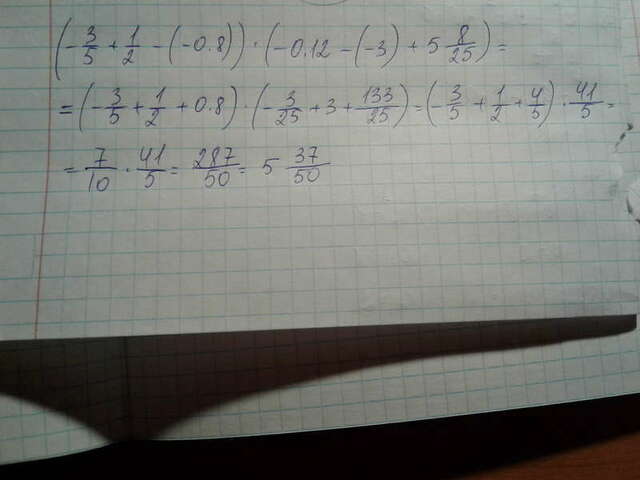 (-3/5 + 1/2 - (-0.8)) · (-0.12 - (-3) + 5 8/25) =
= (-3/5 + 1/2 + 0.8) · (-3/25 + 3 + 133/25) = (-3/5 + 1/2 + 4/5) · 41/5 =
= 7/10 · 41/5 = 287/50 = 5 37/50